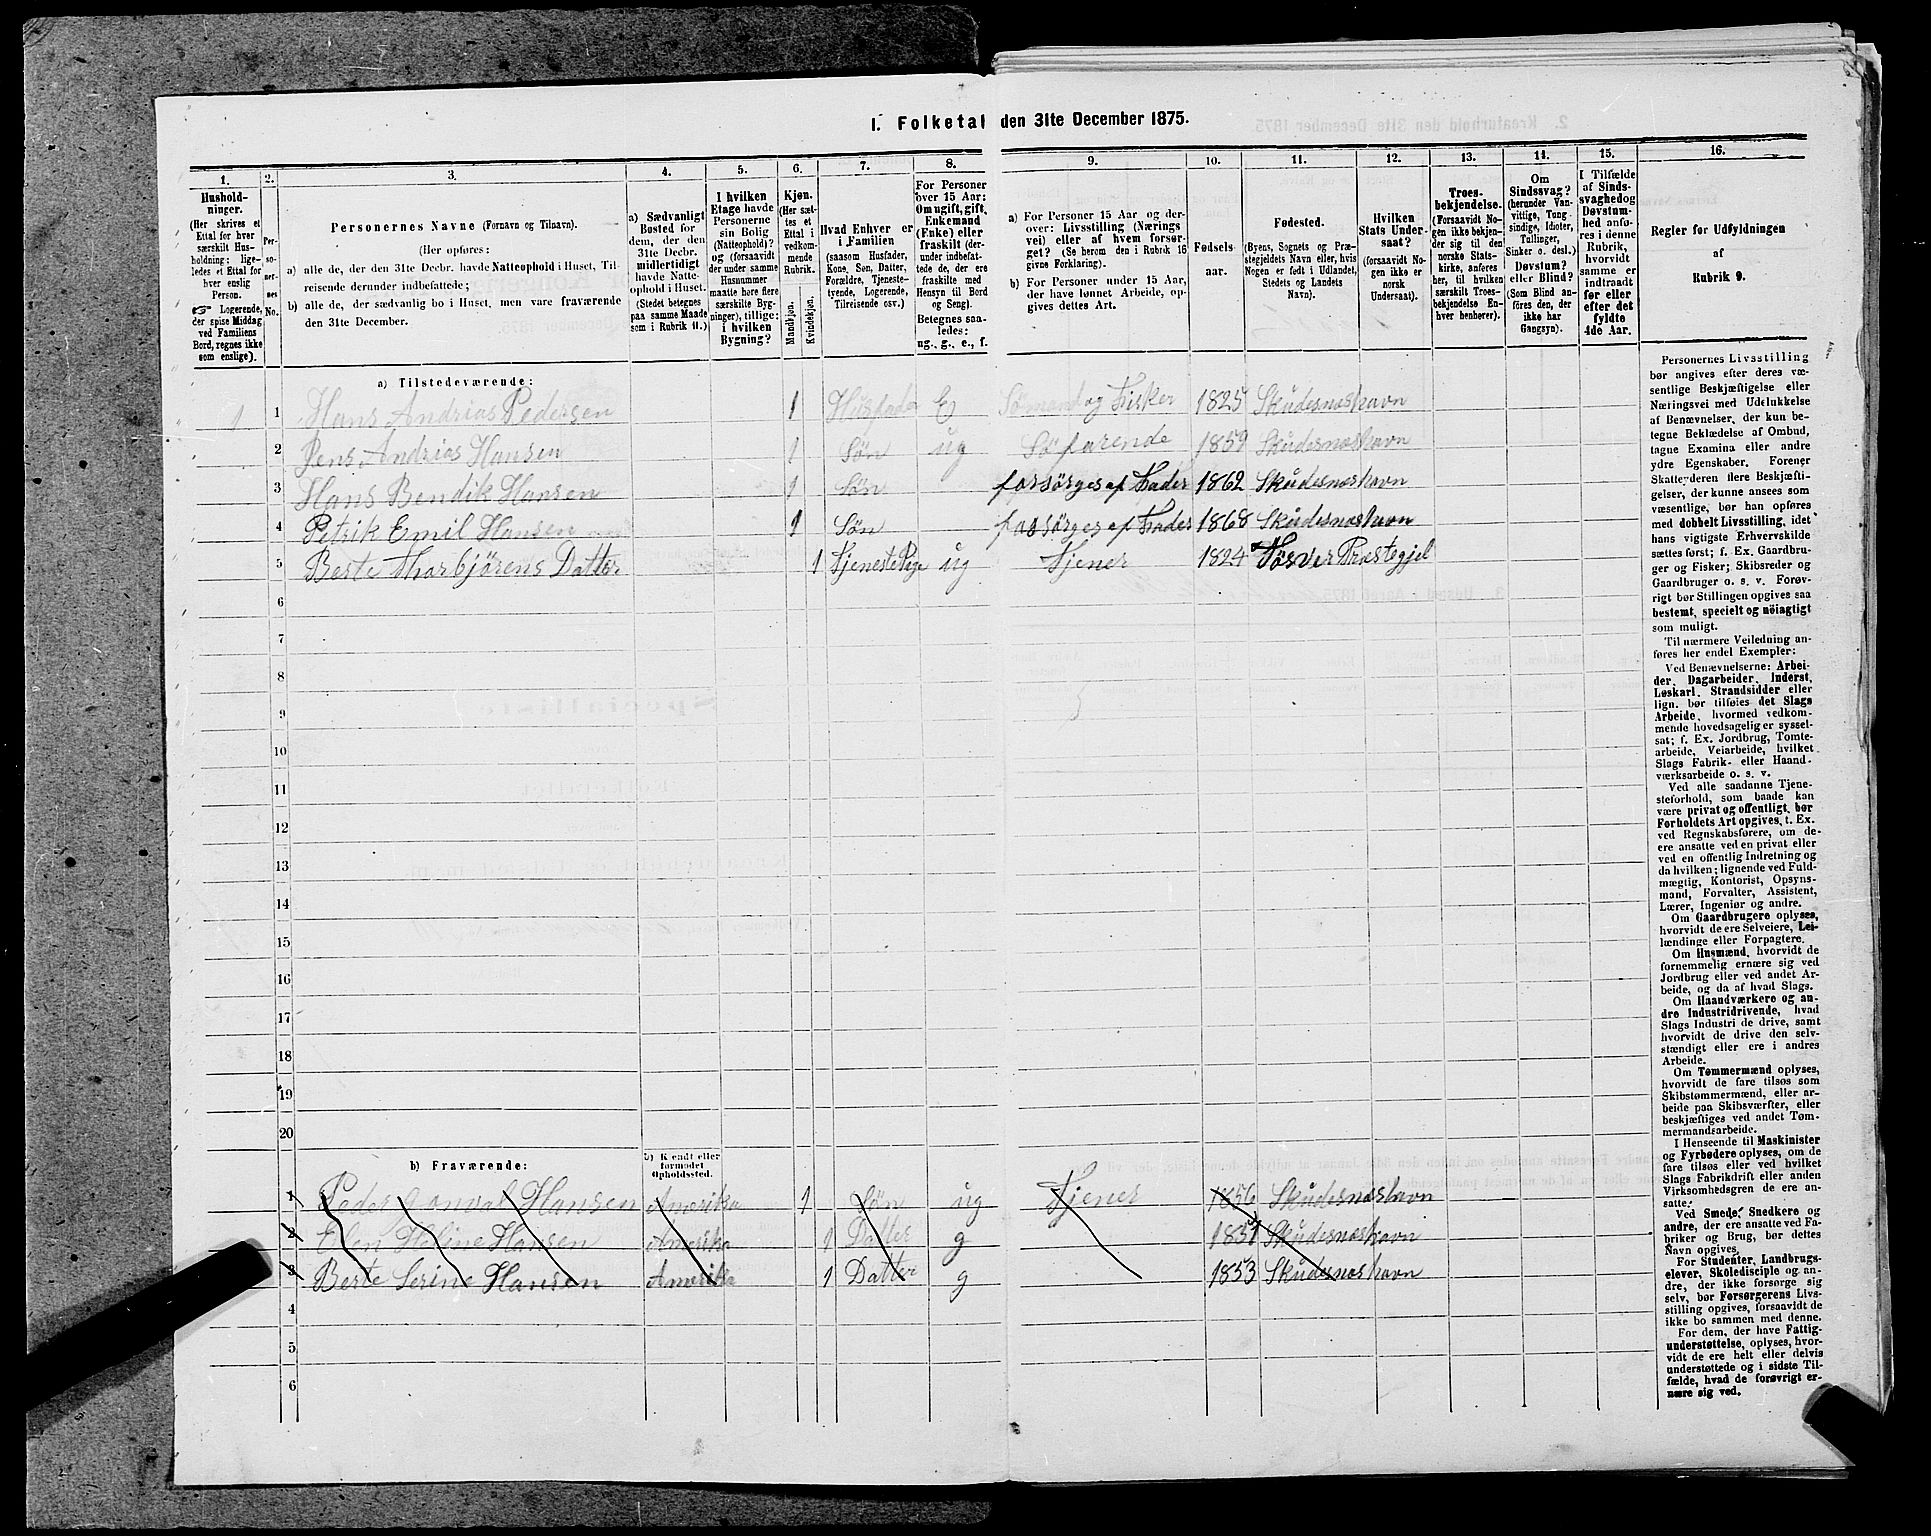 I. Folketal den 31te December 1875.
1. 2. 3. 4. 5. 6. 7. 8. 9. 10. 11. 12. 13. 14. 15. 16.
Hushold-
ninger.
(Her skrives et
Ettal for hver
særskilt Hus-
holdning: lige-
ledes et Ettal for
hver enslig
Person.
Logerende,
der spise Middag
ved Familiens
Bord, regnes ikke
som enslige).
Per-
so-
ner-
nes
No.
Personernes Navne (Fornavn og Tilnavn).
(Her opføres:
a) alle de, der den 31te Decbr. havde Natteophold i Huset, Til-
reisende derunder indbefattede;
b) alle de, der sædvanlig bo i Huset, men vare fraværende
den 31te December.
a) Sædvanligt
Bosted for
dem, der den
31te Decbr.
midlertidigt
havde Natte-
ophold i Huset.
(Stedet betegnes
paa samme Maade
som i Rubrik 11.)
I hvilken
Etage havde
Personerne
sin Bolig
(Natteophold)?
og (forsaavidt
der under samme
Husnummer
maatte høre flere
særskilte Byg-
ninger), tillige:
i hvilken
Bygning?
Kjøn.
(Her sæt-
tes et
Ettal i
vedkom-
mende
Rubrik.
Mandkjøn.
Kvindekjøn.
Hvad Enhver er
i Familien
(saasom Husfader,
Kone, Søn, Datter,
Forældre, Tjeneste-
tyende, Logerende,
Tilreisende osv.)
For Personer
over 15 Aar:
Om ugift, gift,
Enkemand
(Enke) eller
fraskilt (der-
under indbefat-
tede de, der ere
fraskilte med
Hensyn til Bord
og Seng).
Betegnes saa-
ledes:
ug., g., e., f.
a) For Personer 15 Aar og der-
over: Livsstilling (Nærings
vei) eller af hvem forsør-
get? (Se herom den i Rubrik 16
givne Forklaring).
b) For Personer under 15 Aar,
der have lønnet Arbeide, op-
gives dettes Art.
Fødsels-
aar.
Fødested.
(Byens, Sognets og Præ-
stegjeldets Navn eller, hvis
Nogen er født i Udlandet,
Stedets og Landets
Navn).
Hvilken
Stats Under-
saat?
(forsaavidt No-
gen ikke er
norsk
Undersaat).
Troes-
bekjendelse.
(Forsaavidt No-
gen ikke bekjen-
der sig til den
norske Stats-
kirke, anføres
her, til hvilken
særskilt Troes-
bekjendelse En-
hver henhører).
Om
Sindssvag?
(herunder Van-
vittige, Tung-
sindige, Idioter,
Tullinger,
Sinker o. desl.)
Døvstum?
eller Blind?
(Som Blind an-
føres den, der
ikke har
Gangsyn).
I Tilfælde
af Sinds-
svaghed og
Døvstum-
hed anfø-
res i denne
Rubrik,
hvorvidt
samme er
indtraadt
før eller
efter det
fyldte
4de Aar.
Regler for Udfyldningen
af
Rubrik 9.
a) Tilstedeværende:
1 1 Hans Andrias Pedersen 1 Husfader E Sømand og Fisker 1825 Skudesneshavn
2 Jens Andrias Hansen 1 Søn ug Søfarende 1859 Skudesneshavn
3 Hans Bendik Hansen 1 Søn forsörges af Fader 1862 Skudesneshavn
4 Petrik Emil Hansen 1 Søn forsörges af Fader 1868 Skudesneshavn
5 Berte Thorbjörens Datter 1 Tjeneste Pige ug Tjener 1824 Præstegjel
6
7
8
9
10
11
12
13
14
15
16
17
18
19
20
b) Fraværende:
b) Kendt eller
formodet
Opholdssted.
1 Peder Hansen Amerika 1 Søn ug Tjener 1856 Skudesneshavn
2 Elen Heline Hansen Amerika 1 Datter g 1851 Skudesneshavn
3 Berte Serine Hansen Amerika 1 Datter g 1853 Skudesneshavn
4
5
6
Personernes Livsstilling
bør angives efter deres væ-
sentlige Beskjæftigelse eller
Næringsvei med Udelukkelse
af Benævnelser, der kun be-
tegne Beklædelse af Ombud,
tagne Examina eller andre
ydre Egenskaber. Forener
Skatteyderen flere Beskjæfti-
gelser, der kunne ansees som
væsentlige, bør han opføres
med dobbelt Livsstilling, idet
hans vigtigste Erhvervskilde
sættes først; f. Ex. Gaardbru-
ger og Fisker; Skibsreder og
Gaardbruger o. s. v. Forøv-
rigt bør Stillingen opgives saa
bestemt, specielt og nöiagtigt
som muligt.
Til nærmere Veiledning an-
føres her endel Exempler:
Ved Benævnelserne: Arbei-
der, Dagarbeider, Inderst,
Løskarl, Strandsidder eller
lign. bør tilføies det Slags
Arbeide, hvormed vedkom-
mende hovedsagelig er syssel-
sat; f. Ex. Jordbrug, Tomte-
arbeide, Veiarbeide, hvilket
Slags Fabrik- eller Haand-
værksarbeide o. s. v.
Ved alle saadanne Tjene-
steforhold, som baade kan
være privat og offentligt, bør
Forholdets Art opgives, t. Ex.
ved Regnskabsførere, om de-
ere ansatte ved en privat eller
ved en offentlig Indretning og
da hvilken; lignende ved Fuld-
mægtig, Kontorist, Opsyns-
mand, Forvalter, Assistent,
Lærer, Ingeniør og andre.
Om Gaardbrugere oplyses,
hvorvidt de ere Selveiere, Lei-
lændinge eller Forpagtere.
Om Husmænd, hvorvidt de
fornemmelig ernære sig ved
Jordbrug eller ved andet Ar-
beide, og da af hvad Slags.
Om Haandværkere og an-
dre Industridrivende, hvad
Slags Industri de drive, samt
hvorvidt de drive den selv-
stændigt eller ere i andres
Arbeide.
Om Tømmermænd oplyses,
hvorvidt de fare tilsøs som
Skibstømmermænd, eller ar-
beide paa Skibsværfter, eller
beskjæftiges ved andet Tøm-
mermandsarbeide.
I Henseende til Maskinister
og Fyrbødere oplyses, om de
fare tilsøs eller ved hvilket
Slags Fabrikdrift eller anden
Virksomhedsgren de ere an-
satte.
Ved Smede, Snedkere og
andre, der ere ansatte ved Fa-
briker og Brug, bør dettes
Navn opgives.
For Studenter, Landbrugs-
elever, Skoledisciple og an-
dre, der ikke forsørge sig
selv, bør Forsørgerens Livs-
stilling opgives, forsaavidt de
ikke bo sammen med denne.
For dem, der have Fattig-
understøttelse, oplyses, hvor-
vidt de ere helt eller delvis
understøttede og i sidste Til-
fælde, hvad de forøvrigt er-
nære sig ved.